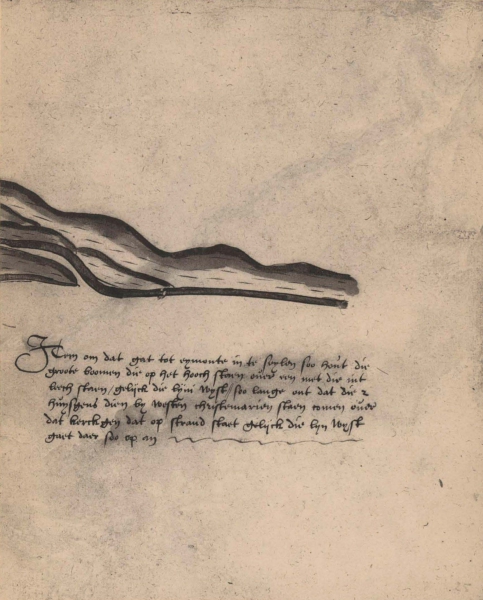 Item om dat gat tot egmonte in te seylen soo hout die
groote boomen die op het hooch staen over een met die int
berch staen / gelijck die lijni wyst / soo lange ont dat die 2
huysgens dien by westen christemarien staen comen over
dat kerckgen dat op strand staet gelijck die lyn wyst
gaet daer soo op an